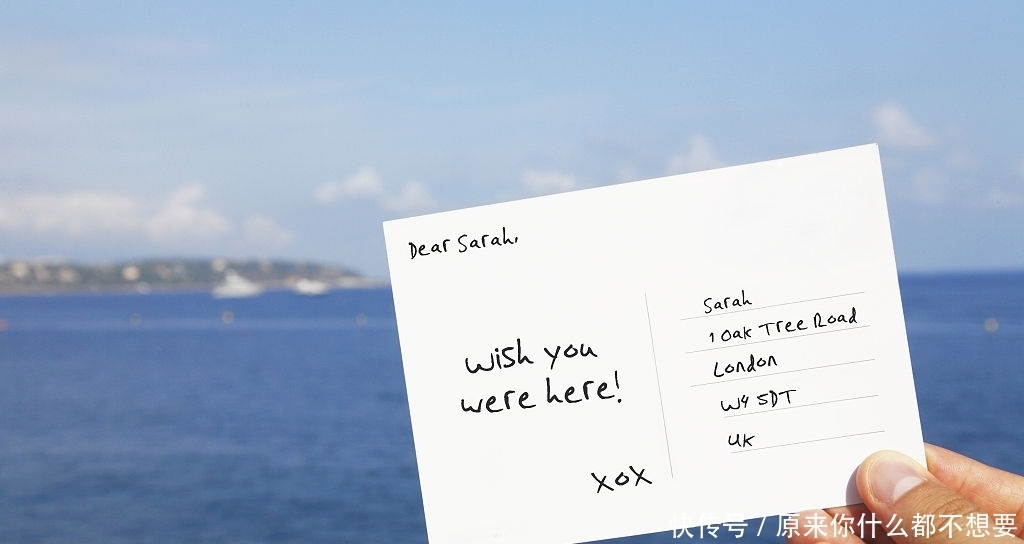 Dear Sarah,
wish you
were here!
xox
Sarah
1 Oak Tree Road
London
W4 5DT
UK
快传号 / 原来你什么都不想要